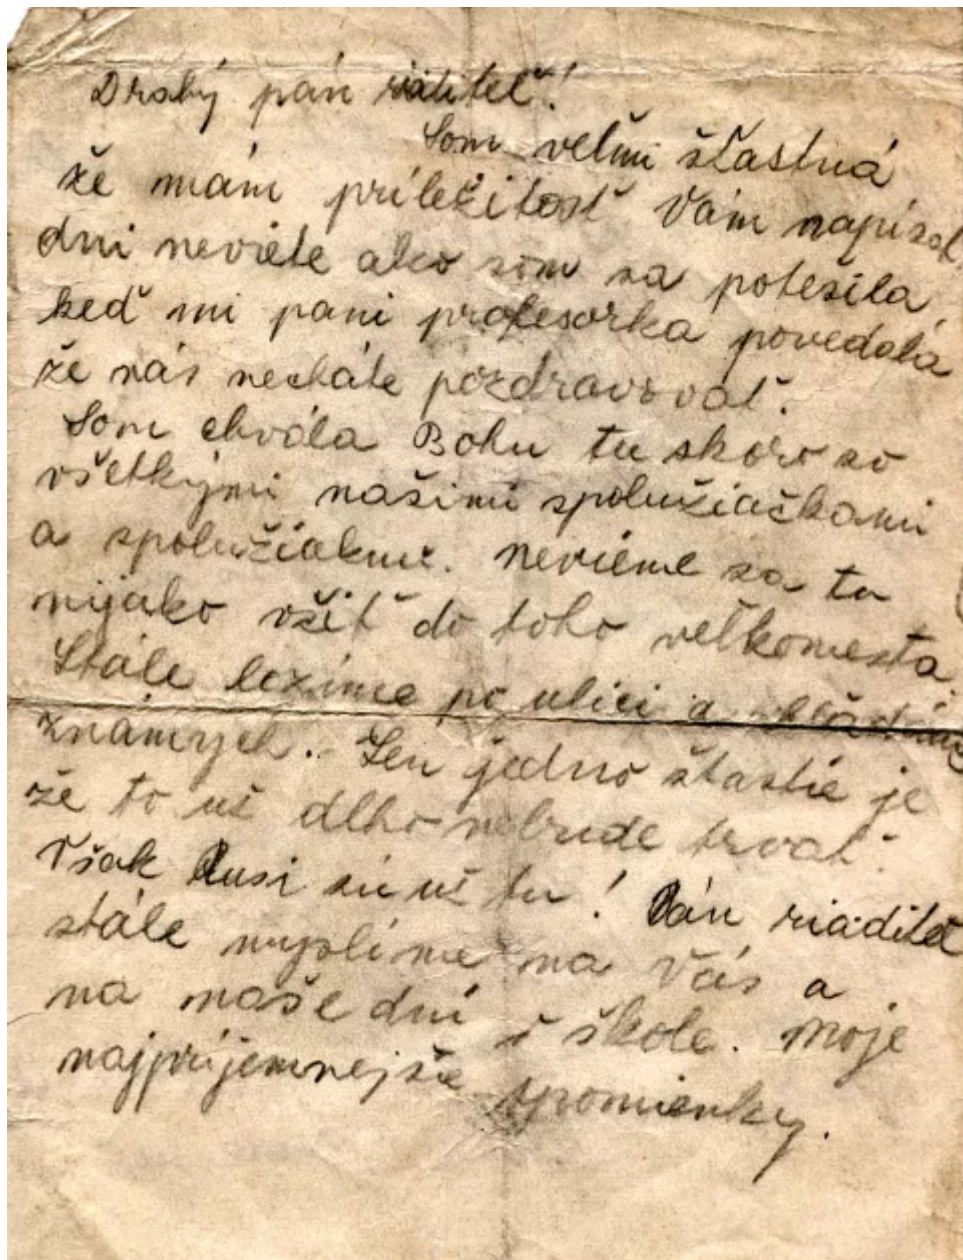 Drahý pán riaditeľ!
Som veľmi šťastná
že mám príležitosť Vám napísať
ani neviete ako som sa potešila
keď mi pani profesorka povedala
že nás necháte pozdravovať.
Som chvála Bohu tu skoro so
všetkými našimi spolužiačkami
a spolužiakmi. Nevieme sa tu
nijako vžiť do toho veľkomesta.
Stále lozíme po ulici a hľadáme
známych. Len jedno šťastie je
že to už dlho nebude trvať.
Však Rusi sú už tu! Pán riaditeľ
stále myslíme na Vás a
na naše dni v škole. Moje
najpríjemnejšie spomienky.